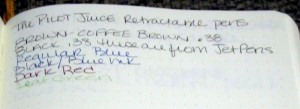 The PILOT Juice Retractable pens
BROWN - COFFEE BROWN .38
BLACK .38 these are from JetPens
Regular Blue
Black/Blue Ink
Dark Red
Green